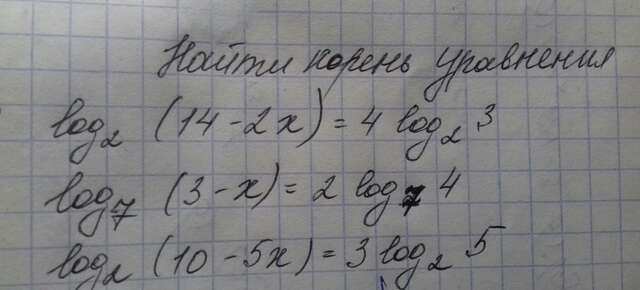 Найти корень уравнения
log₂ (14 - 2x) = 4 log₂ 3
log₇ (3 - x) = 2 log₇ 4
log₂ (10 - 5x) = 3 log₂ 5